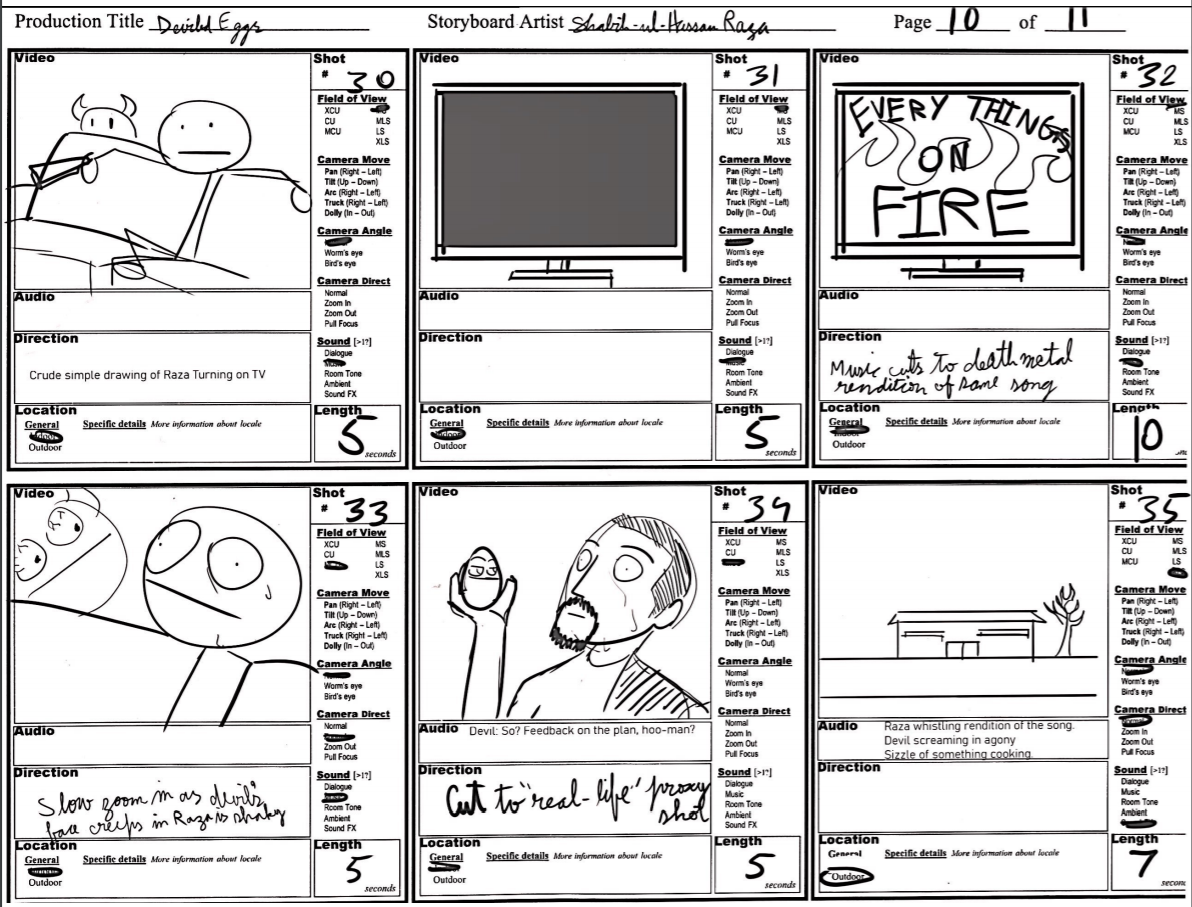 Production Title Deviled Eggs Storyboard Artist Shabih-ul-Hassan Raza Page 10 of 11
Video
Shot
# 30
Field of View
XCU
CU MLS
MCU LS
XLS
Camera Move
Pan (Right – Left)
Tilt (Up – Down)
Arc (Right – Left)
Truck (Right – Left)
Dolly (In – Out)
Camera Angle
Worm's eye
Bird's eye
Camera Direct
Normal
Zoom In
Zoom Out
Pull Focus
Audio
Direction
Crude simple drawing of Raza Turning on TV
Sound [>1?]
Dialogue
Music
Room Tone
Ambient
Sound FX
Location
General Specific details More information about locale
Indoor
Outdoor
Length
5
seconds
Video
Shot
# 31
Field of View
XCU
CU MLS
MCU LS
XLS
Camera Move
Pan (Right – Left)
Tilt (Up – Down)
Arc (Right – Left)
Truck (Right – Left)
Dolly (In – Out)
Camera Angle
Worm's eye
Bird's eye
Camera Direct
Normal
Zoom In
Zoom Out
Pull Focus
Audio
Direction
Sound [>1?]
Dialogue
Music
Room Tone
Ambient
Sound FX
Location
General Specific details More information about locale
Indoor
Outdoor
Length
5
seconds
Video
EVERY THINGS
ON
FIRE
Shot
# 32
Field of View
XCU MS
CU MLS
MCU LS
XLS
Camera Move
Pan (Right – Left)
Tilt (Up – Down)
Arc (Right – Left)
Truck (Right – Left)
Dolly (In – Out)
Camera Angle
Worm's eye
Bird's eye
Camera Direct
Normal
Zoom In
Zoom Out
Pull Focus
Audio
Direction
Music cuts to death metal
rendition of same song
Sound [>1?]
Dialogue
Room Tone
Ambient
Sound FX
Location
General Specific details More information about locale
Indoor
Outdoor
Length
10
Video
Shot
# 33
Field of View
XCU MS
CU MLS
LS
XLS
Camera Move
Pan (Right – Left)
Tilt (Up – Down)
Arc (Right – Left)
Truck (Right – Left)
Dolly (In – Out)
Camera Angle
Worm's eye
Bird's eye
Camera Direct
Normal
Zoom Out
Pull Focus
Audio
Direction
Slow zoom in as devil's
face creeps in Raza is shaky
Sound [>1?]
Dialogue
Room Tone
Ambient
Sound FX
Location
General Specific details More information about locale
Outdoor
Length
5
seconds
Video
Shot
# 34
Field of View
XCU MS
CU MLS
LS
XLS
Camera Move
Pan (Right – Left)
Tilt (Up – Down)
Arc (Right – Left)
Truck (Right – Left)
Dolly (In – Out)
Camera Angle
Normal
Worm's eye
Bird's eye
Camera Direct
Normal
Zoom In
Zoom Out
Pull Focus
Audio Devil: So? Feedback on the plan, hoo-man?
Direction
Cut to "real-life" proxy
shot
Sound [>1?]
Dialogue
Music
Room Tone
Ambient
Sound FX
Location
General Specific details More information about locale
Outdoor
Length
5
seconds
Video
Shot
# 35
Field of View
XCU MS
CU MLS
MCU LS
Camera Move
Pan (Right – Left)
Tilt (Up – Down)
Arc (Right – Left)
Truck (Right – Left)
Dolly (In – Out)
Camera Angle
Worm's eye
Bird's eye
Camera Direct
Zoom In
Zoom Out
Pull Focus
Audio Raza whistling rendition of the song.
Devil screaming in agony
Sizzle of something cooking.
Direction
Sound [>1?]
Dialogue
Music
Room Tone
Ambient
Location
General Specific details More information about locale
Outdoor
Length
7